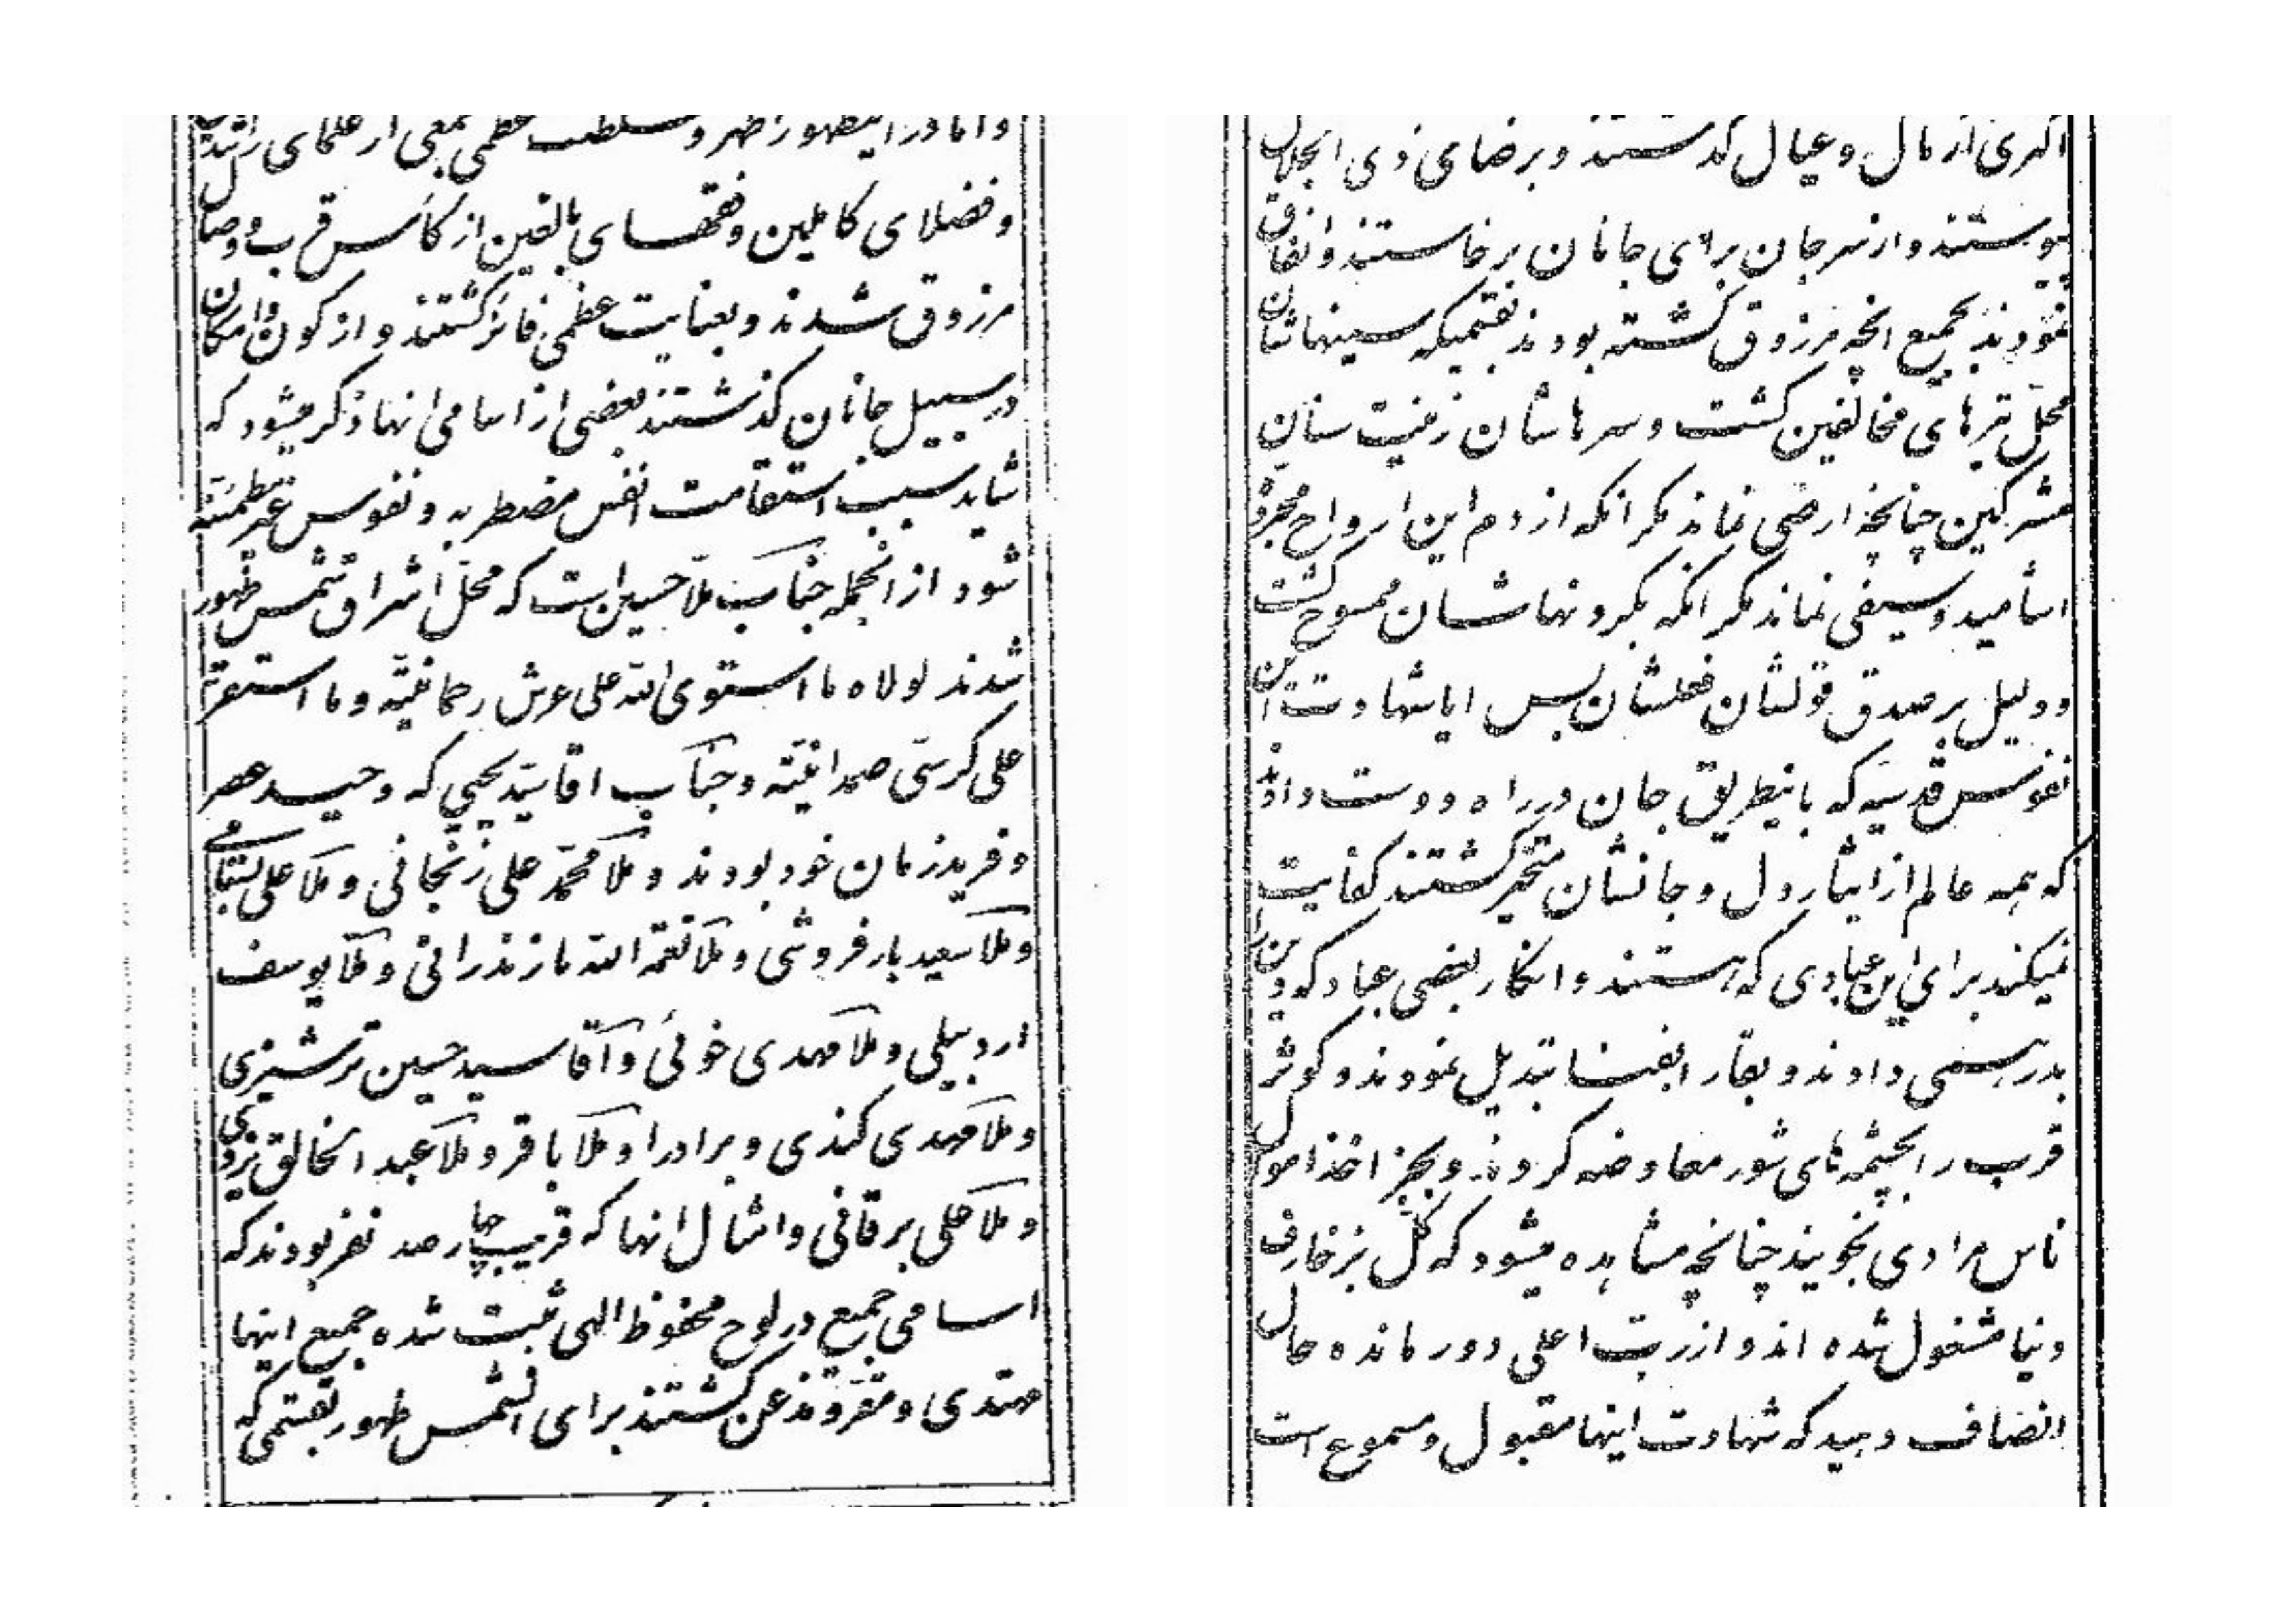 و اما در اینظهور اظهر و سلطنت عظمی جمعی از علمای راشدین
و فضلای کاملین و فقهای بالغین از کأس قرب و وصال
مرزوق شدند و بعنایت عظمی فائز گشتند و از کون و امکان
در سبیل جانان گذشتند بعضی از اسامی انها ذکر میشود که
شاید سبب استقامت انفس مضطربه و نفوس غیر مطمئنّه
شود از انجمله جناب ملّا حسین است که محلّ اشراق شمس ظهور
شدند لولاه ما استوی اللّه علی عرش رحمانیّته و ما استقرّ
علی کرسیّ صمدانیّته و جناب اقا سیّد یحیی که وحید عصر
و فرید زمان خود بودند و ملا محمّد علی زنجانی و ملا علی بسطامی
و ملا سعید بارفروشی و ملا نعمة اللّه مازندرانی و ملّا یوسف
اردبیلی و ملا مهدی خوئی و آقا سید حسین ترشیزی
و ملا مهدی کندی و برادر او ملا باقر و ملا عبد الخالق یزدی
و ملا علی برقانی و امثال انها که قریب چهار صد نفر بودند که
اسامی جمیع در لوح محفوظ الهی ثبت شده جمیع اینها
مهتدی و مقرّ و مذعن گشتند برای انشمس ظهور بقسمی که
اکثری از مال و عیال گذشتند و برضای ذی الجلال
پیوستند و از سر جان برای جانان برخاستند و انفاق
نمودند بجمیع انچه مرزوق گشته بودند بقسمیکه سینهاشان
محلّ تیرهای مخالفین گشت و سرهاشان زینت سنان
مشرکین چنانچه ارضی نماند مگر انکه از دم این ارواح مجرده
اشامید و سیفی نماند مگر انکه بگردنهاشان ممسوح گشت
و دلیل بر صدق قولشان فعلشان بس ایا شهادت این
نفوس قدسیه که باینطریق جان در راه دوست دادند
که همه عالم از ایثار دل و جانشان متحیّر گشتند کفایت
نمیکند برای این عبادی که هستند و انکار بعضی عباد که دین را
بدرهمی دادند و بقا را بفنا تبدیل نمودند و کوثر
قرب را بچشمه‌های شور معاوضه کردند و بجز اخذ اموال
ناس مرادی نجویند چنانچه مشاهده میشود که کلّ بزخارف
دنیا مشغول شده اند و از ربّ اعلی دور مانده حال
انصاف دهید که شهادت اینها مقبول و مسموع است